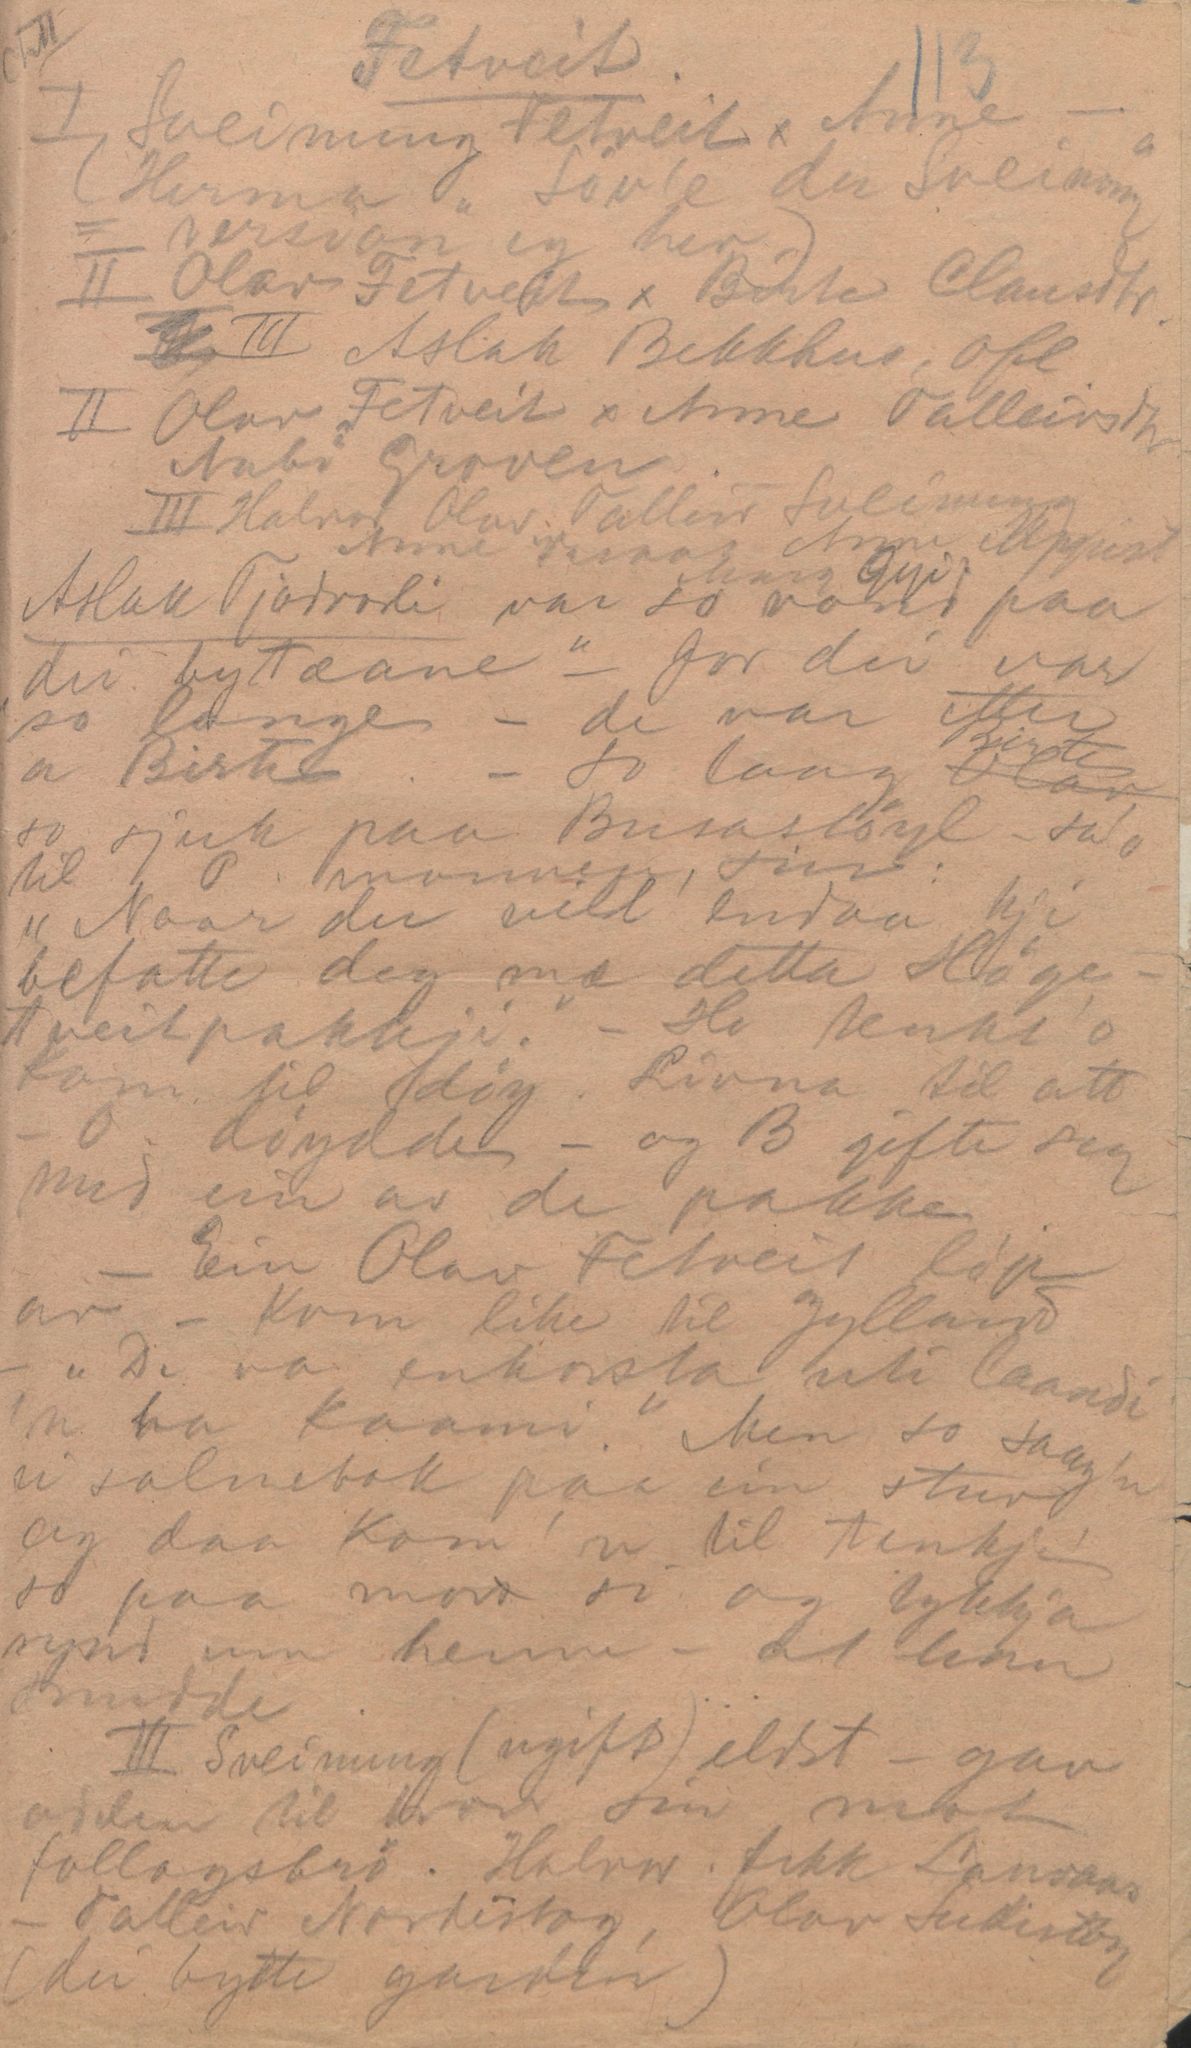 Fetveit. 113
I Sveinung Fetveit x Anne —
(Herma " Söv'e du Sveinung"
= versjon eg her)
II Olav Fetveit x Birte Clausdtr.
III Aslak Bekkhus, ofl
II Olav Fetveit x Anne Talleivsdtr
Aabö Groven
III Halvor Olav Talleiv Sveinung
Anne Anne Margit
Gyri
Aslak Tjodrodi var so vond paa
dei bytæane" – for dei var
so lenge – de var etter
a Birte. – So laag Birte
so sjuk paa Busastöyl – sa'o
til mannen sin:
"Naar du vild' endaa kji
befatte deg mæ detta Höge-
tveitpakkji." – Ho tenkt'o
kom til döy. Livna til att
– O. döydde – og B gifte seg
med ein av de pakke
– Ein Olav Fetveit löp
av – kom like til Jylland
– "De va enkorsta uti laandi
'n ha kaami." Men so saag'n
ei salmebok paa ein stuv
og daa kom'n til tenkje
so paa mor si og tykkja
synd um henne – at han
snudde
III Sveinung (ugift) eldst – gav
odelen til bror sin mot
follagsbrö. Halvor fekk Landaas
– Talleiv Nordistog, Olav Sudistog
(dei bytte garden)